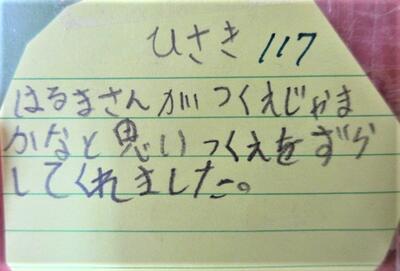 ひさき 117
はるまさんが つくえじゃま
かなと思いつくえをずら
してくれました。